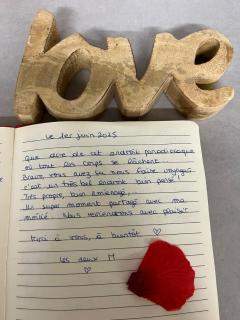 love
Le 1er juin 2025
Que dire de cet endroit paradisiaque
où tout les corps se lâchent.
Bravo, vous avez su nous faire voyager,
c'est un très bel endroit, bien pensé,
Très propre, bien aménagé,...
Un super moment partagé avec ma
moitié. Nous reviendrons avec plaisir
Merci à vous, à bientôt ♡
Les deux M
♡